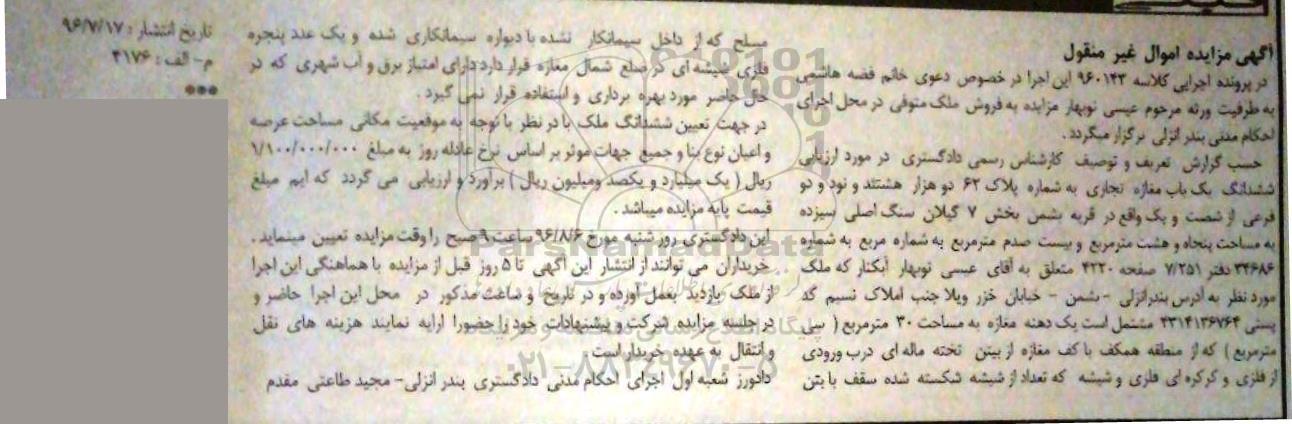 آگهی مزایده اموال غیر منقول
در پرونده اجرایی کلاسه ۹۶۰۱۴۳ این اجرا در خصوص دعوی خانم فضه هاشمی
به طرفیت ورثه مرحوم عیسی نوبهار مزایده به فروش ملک متوفی در محل اجرای
احکام مدنی بندر انزلی برگزار میگردد.
حسب گزارش تعریف و توصیف کارشناس رسمی دادگستری در مورد ارزیابی
ششدانگ یک باب مغازه تجاری به شماره پلاک ۶۲ دو هزار هشتند و نود و دو
فرعی از شصت و یک واقع در قریه بشمن بخش ۷ گیلان سنگ اصلی سیزده
به مساحت پنجاه و هشت مترمربع و بیست صدم مترمربع به شماره مربع به شماره
۳۴۶۸۶ دفتر ۷/۲۵۱ صفحه ۴۲۲۰ متعلق به آقای عیسی نوبهار آبکنار که ملک
مورد نظر به آدرس بندرانزلی - بشمن - خیابان خزر ویلا جنب املاک نسیم کد
پستی ۴۳۱۴۱۳۶۷۶۴ مشتمل است یک دهنه مغازه به مساحت ۳۰ مترمربع ( سی
مترمربع ) که از منطقه همکف با کف مغازه از بیتن تخته ماله ای درب ورودی
از فلزی و کرکره ای فلزی و شیشه که تعداد از شیشه شکسته شده سقف با بتن
مسلح که از داخل سیمانکار نشده با دیواره سیمانکاری شده و یک عدد پنجره
فلزی شیشه ای در ضلع شمال مغازه قرار دارد دارای امتیاز برق و آب شهری که در
حال حاضر مورد بهره برداری و استفاده قرار نمی گیرد.
در جهت تعیین ششدانگ ملک با در نظر با توجه به موقعیت مکانی مساحت عرصه
و اعیان نوع بنا و جمیع جهات موثر بر اساس نرخ عادله روز به مبلغ ۱/۱۰۰/۰۰۰/۰۰۰
ریال ( یک میلیارد و یکصد ومیلیون ریال ) برآورد و ارزیابی می گردد که ایم مبلغ
قیمت پایه مزایده میباشد.
این دادگستری روز شنبه مورخ ۹۶/۸/۶ ساعت ۹ صبح را وقت مزایده تعیین مینماید.
خریداران می توانند از انتشار این آگهی تا ۵ روز قبل از مزایده با هماهنگی این اجرا
از ملک بازدید بعمل آورده و در تاریخ و ساعت مذکور در محل این اجرا حاضر و
در جلسه مزایده شرکت و پیشنهادات خود را حضورا ارایه نمایند هزینه های نقل
و انتقال به عهده خریدار است.
دادورز شعبه اول اجرای احکام مدنی دادگستری بندر انزلی- مجید طاعتی مقدم
تاریخ انتشار : ۹۶/۷/۱۷
م- الف : ۴۱۷۶
ParsNamadData
۰۲۱-۸۸۳۴۹۶۷۰-۵